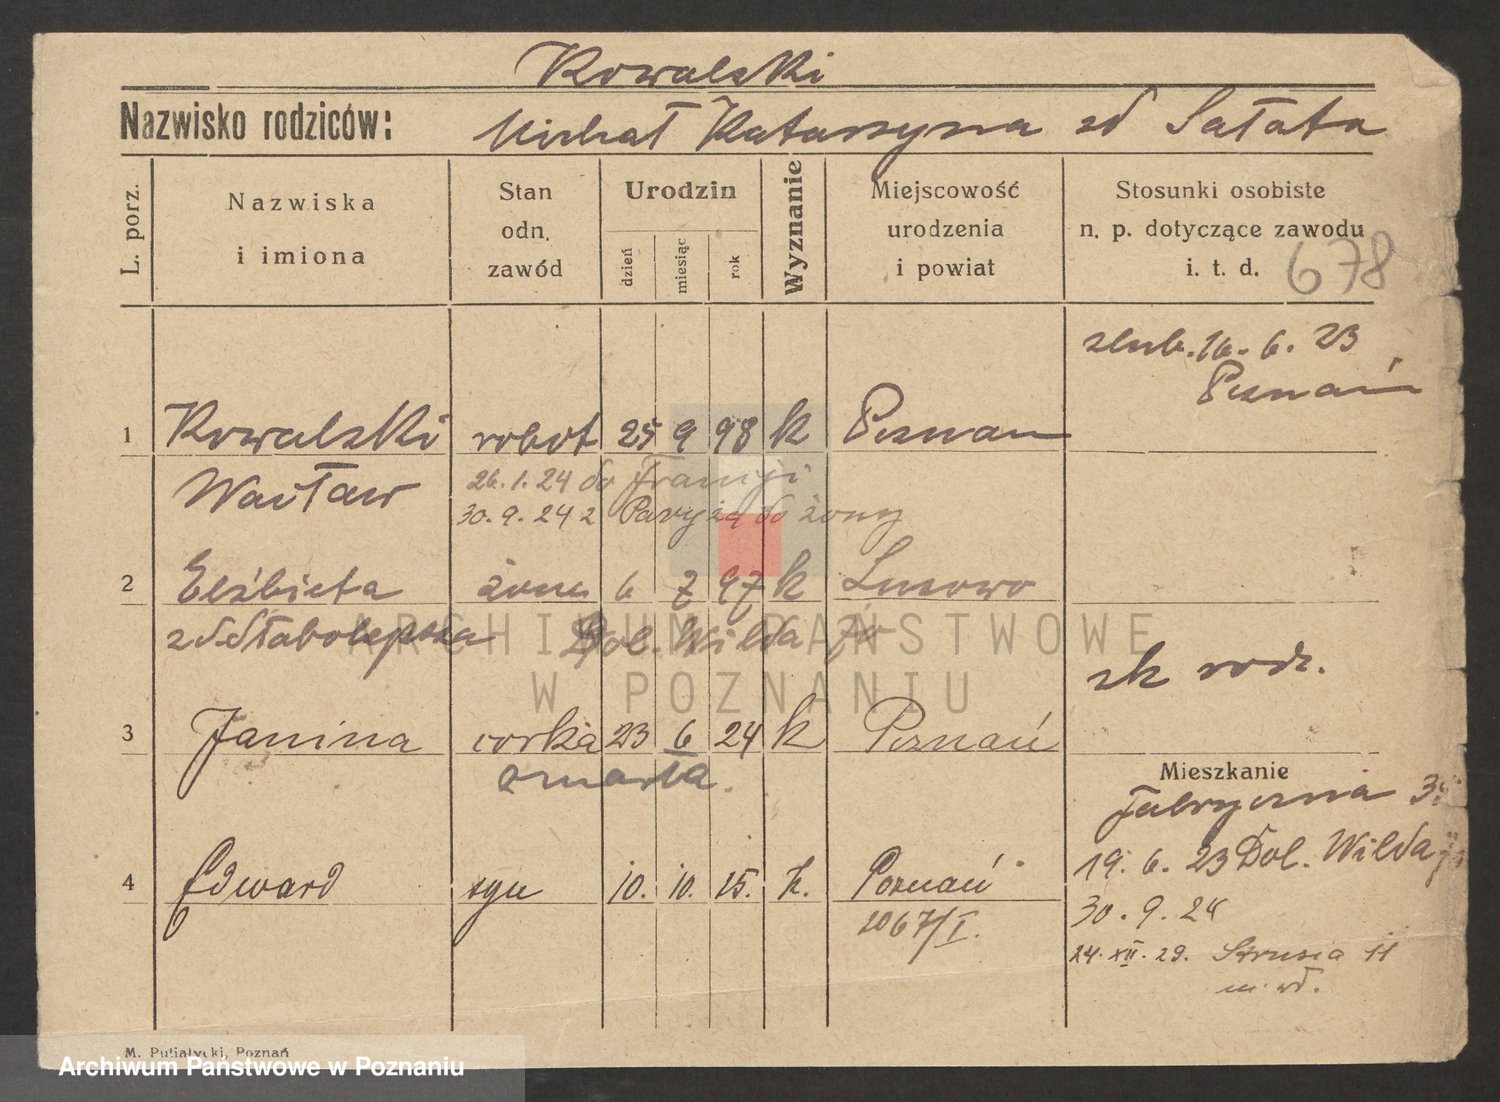 Kowalski
Nazwisko rodziców: Michał Katarzyna zd Sałata
L. porz.
Nazwiska i imiona
Stan odn. zawód
Urodzin
dzień miesiąc rok
Wyznanie
Miejscowość urodzenia i powiat
Stosunki osobiste n. p. dotyczące zawodu i. t. d.
678
slub. 16. 6. 23
Poznań
1 Kowalski robot 25 9 98 k Poznan
Wacław 26.1.24 do Francji
30.9.24 z Paryża do żony
2 Elżbieta żona 6 7 97 k Lusowo
Dol. Wilda
zk rodz.
3 Janina corka 23 6 24 k Poznań
zmarła.
Mieszkanie
Fabryczna
4 Edward syn 10. 10. 25. k. Poznań
19. 6. 23 Dol. Wilda
1067/I.
30. 9. 24
24. XII. 29. Strusia 11
M. Putiatycki, Poznań
ARCHIWUM PAŃSTWOWE
W POZNANIU
Archiwum Państwowe w Poznaniu